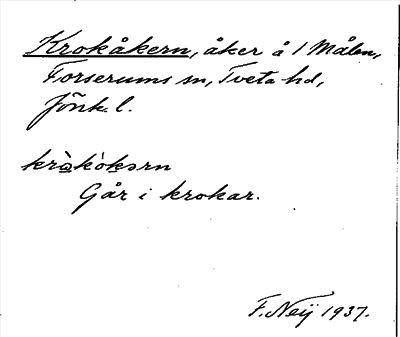 Krokåkern, åker å 1 Målen,
Forserums sn, Tveta hd,
Jönk. l.
krὰkὸkərn
Går i krokar.
F. Neij 1937.